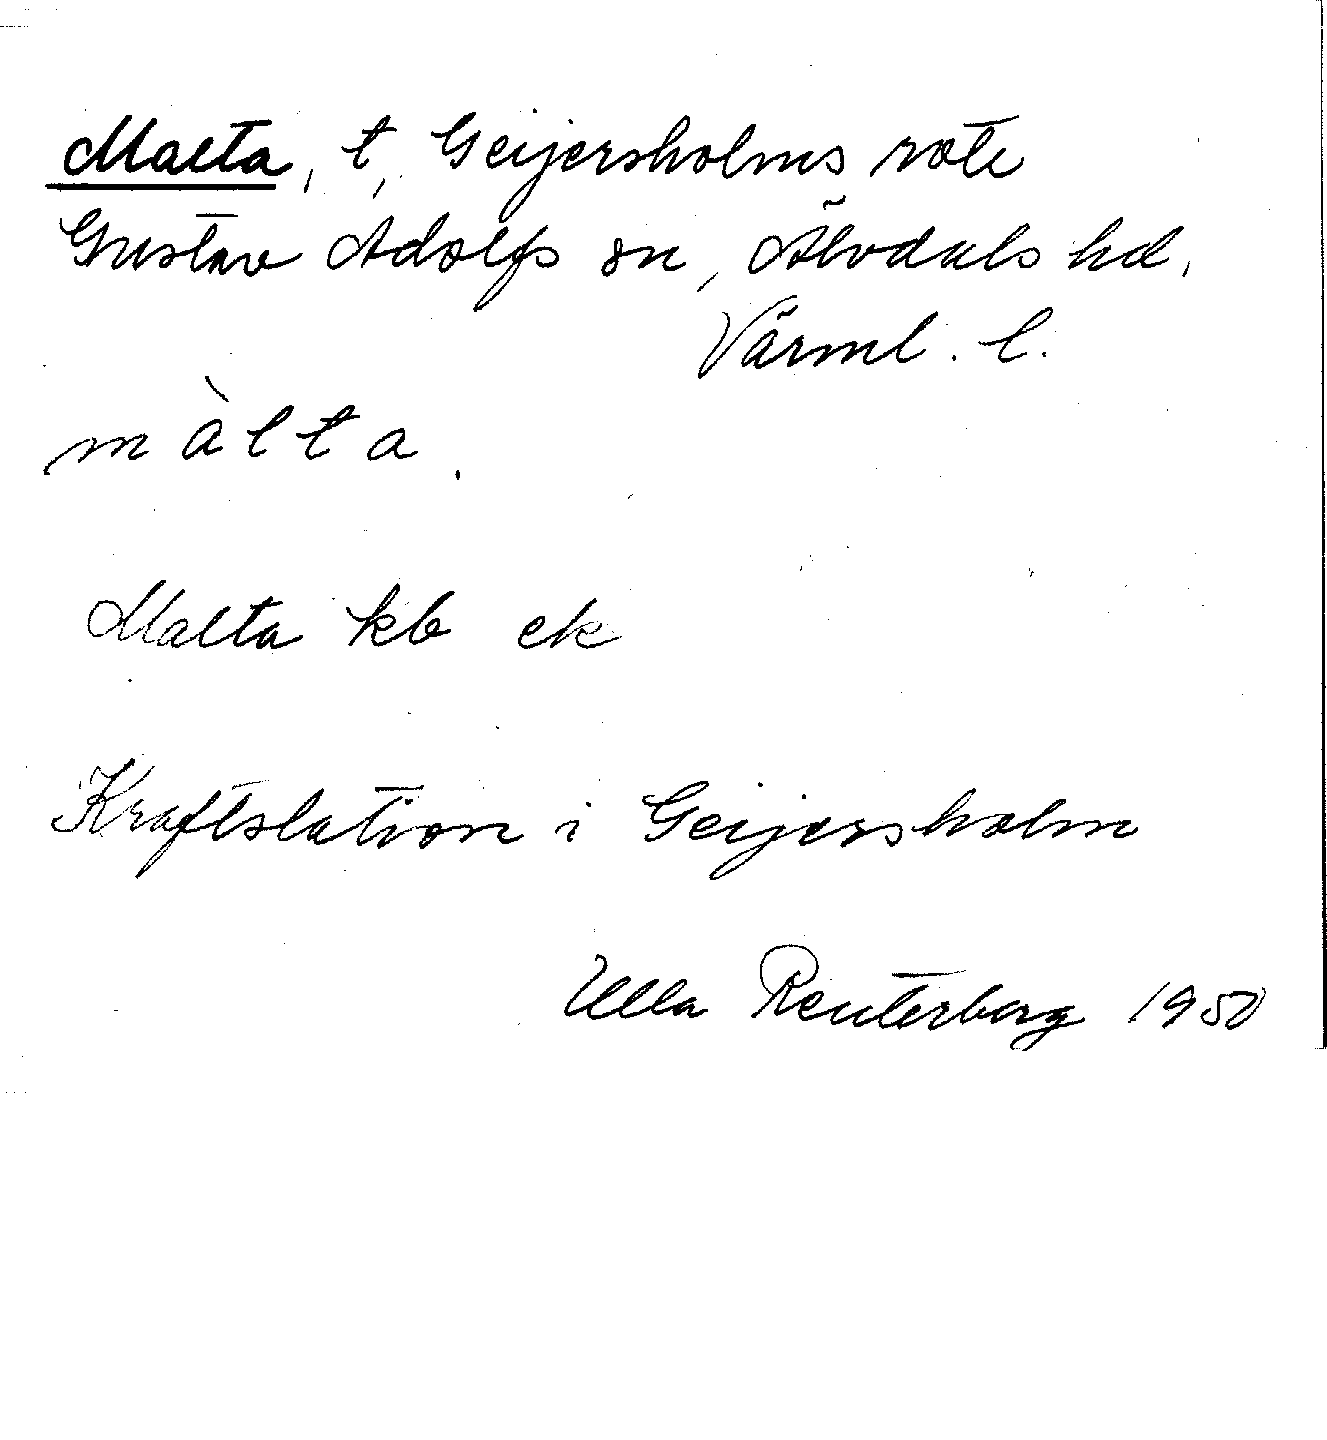 Malta, t, Geijersholms rote
Gustav Adolfs sn, Älvdals hd,
Värml. l.
màlta.
Malta kb ek
Kraftstation i Geijersholm
Ulla Reuterberg 1950